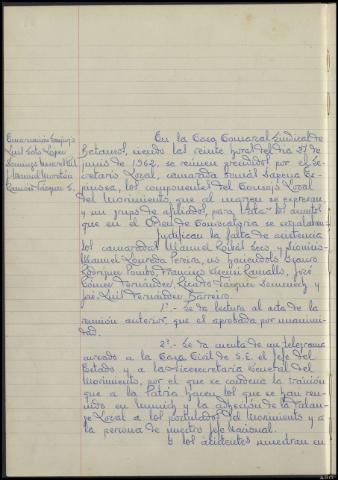 En la Casa Comarcal Sindical de
Betanzos, siendo las veinte horas del día 27 de
junio de 1962, se reúnen presididos por el Se-
cretario Local, camarada Tomás Dapena Es-
pinosa, los componentes del Consejo Local
del Movimiento, que al margen se expresan,
y un grupo de afiliados, para tratar los asuntos
que en el Orden de Convocatoria se señalaban
Justifican la falta de asistencia
los camaradas Manuel Roibás Seco y Dionisio-
Manuel Loureda Pereira, no haciéndolo Genaro
Rodríguez Pombo, Francisco Ramallo, José
Gómez Fernández, Ricardo Vázquez y
José-Luis Fernández Barreiro.
1º.- Se da lectura al acta de la
reunión anterior, que es aprobada por unanimi-
dad.
2º.- Se da cuenta de un telegrama
enviado a la Casa Civil de S.E. el Jefe del
Estado y a la Vicesecretaría General del
Movimiento, por el que se condena la traición
que a la Patria hacen los que se han reu-
nido en Munich y la adhesión de la Falan-
ge Local a los postulados del Movimiento y a
la persona de nuestro Jefe Nacional.
Luis López
Manuel
Ramón Vázquez